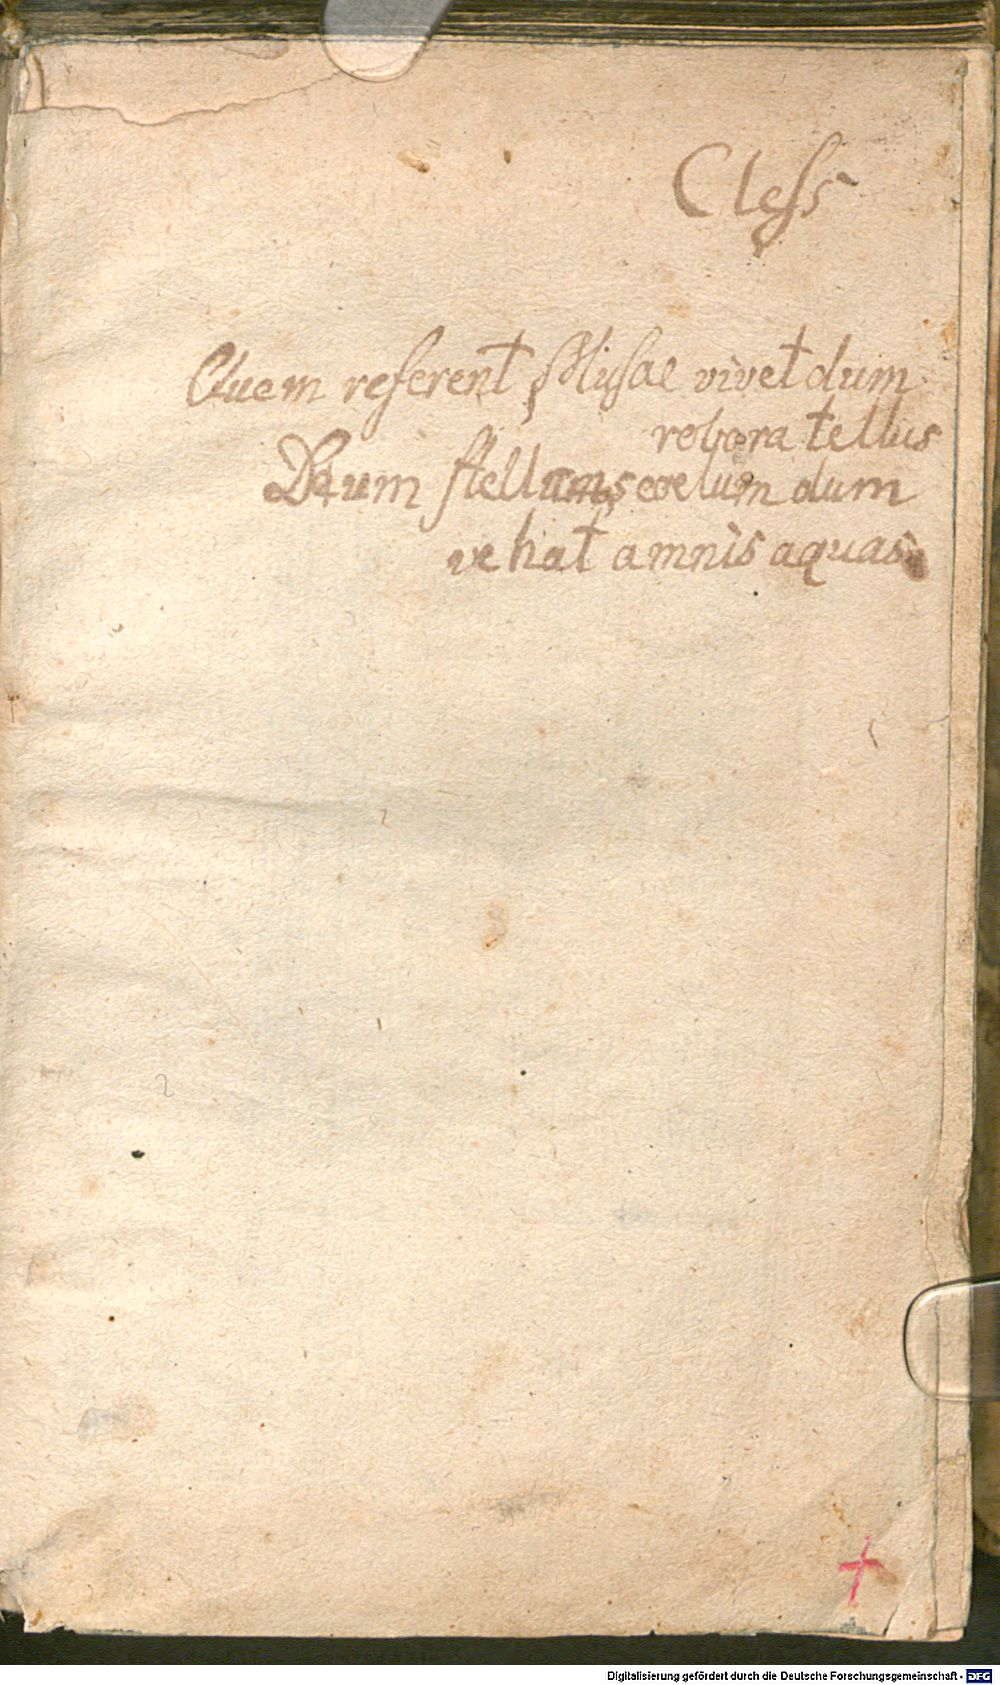 Cless
Quem referent Musae vivet dum
robora tellus
Dum stellas coelum dum
vehat amnis aquas.
Digitalisierung gefördert durch die Deutsche Forschungsgemeinschaft - DFG